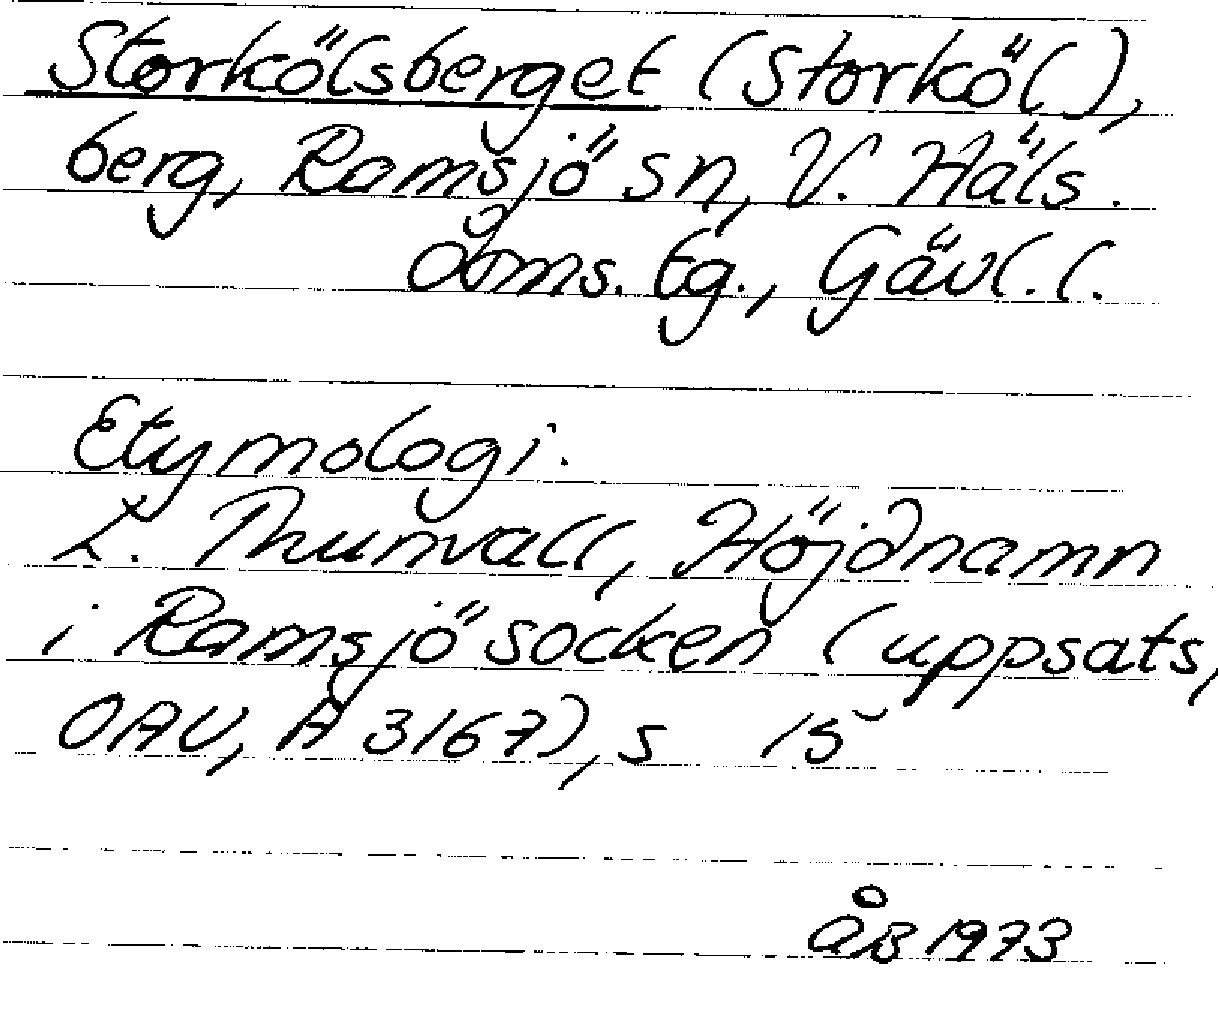 Storkölsberget (Storköl),
berg, Ramsjö sn, V. Häls.
doms.tg., Gävl.l.
Etymologi:
L. Thunvall, Höjdnamn
i Ramsjö socken (uppsats,
OAU, A 3167), s 15
ÅB 1973